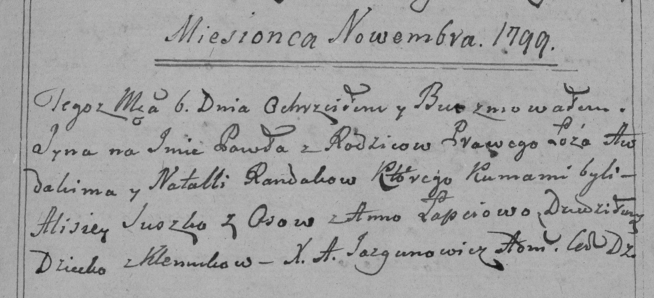 Miesionca Nowembra. 1799.
Tegoz Mca 6. Dnia Ochrzciłem y Burzmowałem.
Syna na Imie Pawła z Rodzicow Prawego Łoża Aw
dakima y Natalli Randakow Ktorego Kumami byli
Alisiey Suszko z Osow z Anno Łapciowo,
Dziecko z Klennikow – X. A. Jazgunowicz Adm. Cer Dz.